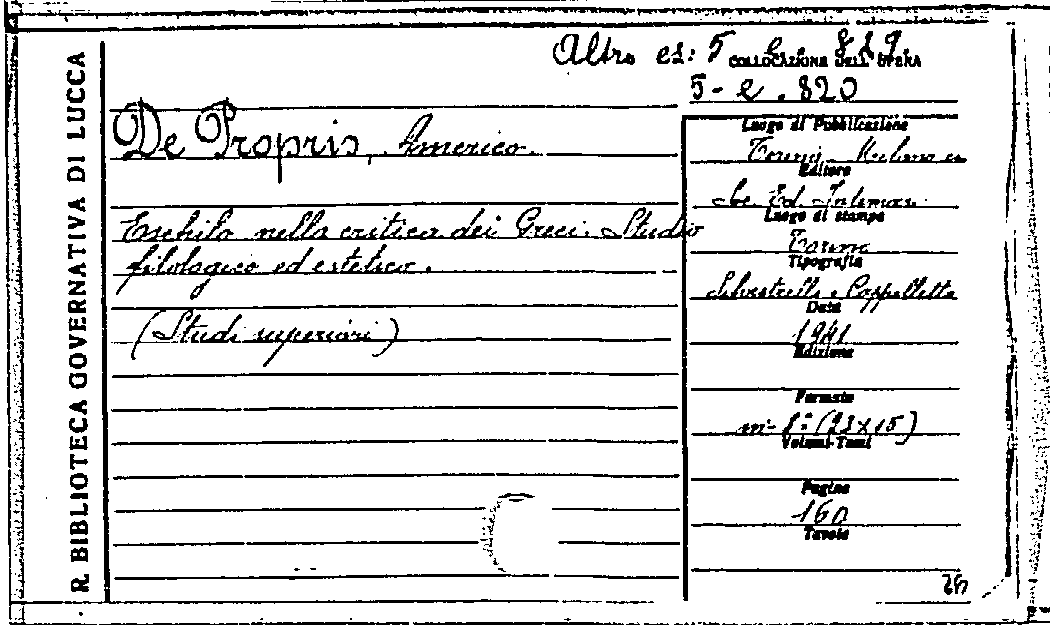 R. BIBLIOTECA GOVERNATIVA DI LUCCA
Altro es: 5 829.
COLLOCAZIONE DELL'OPERA
5 - e . 820
De Propris, Americo.
Eschilo nella critica dei Greci. Studio
filologico ed estetico.
(Studi superiori)
Luogo di Pubblicazione
Torino - Milano
Editore
Soc. Ed. Internaz.
Luogo di stampa
Torino
Tipografia
Silvestrelli e Cappelletto
Data
1941
Edizione
Formato
in-8° (23x15)
Volumi-Tomi
Pagine
160
Tavole